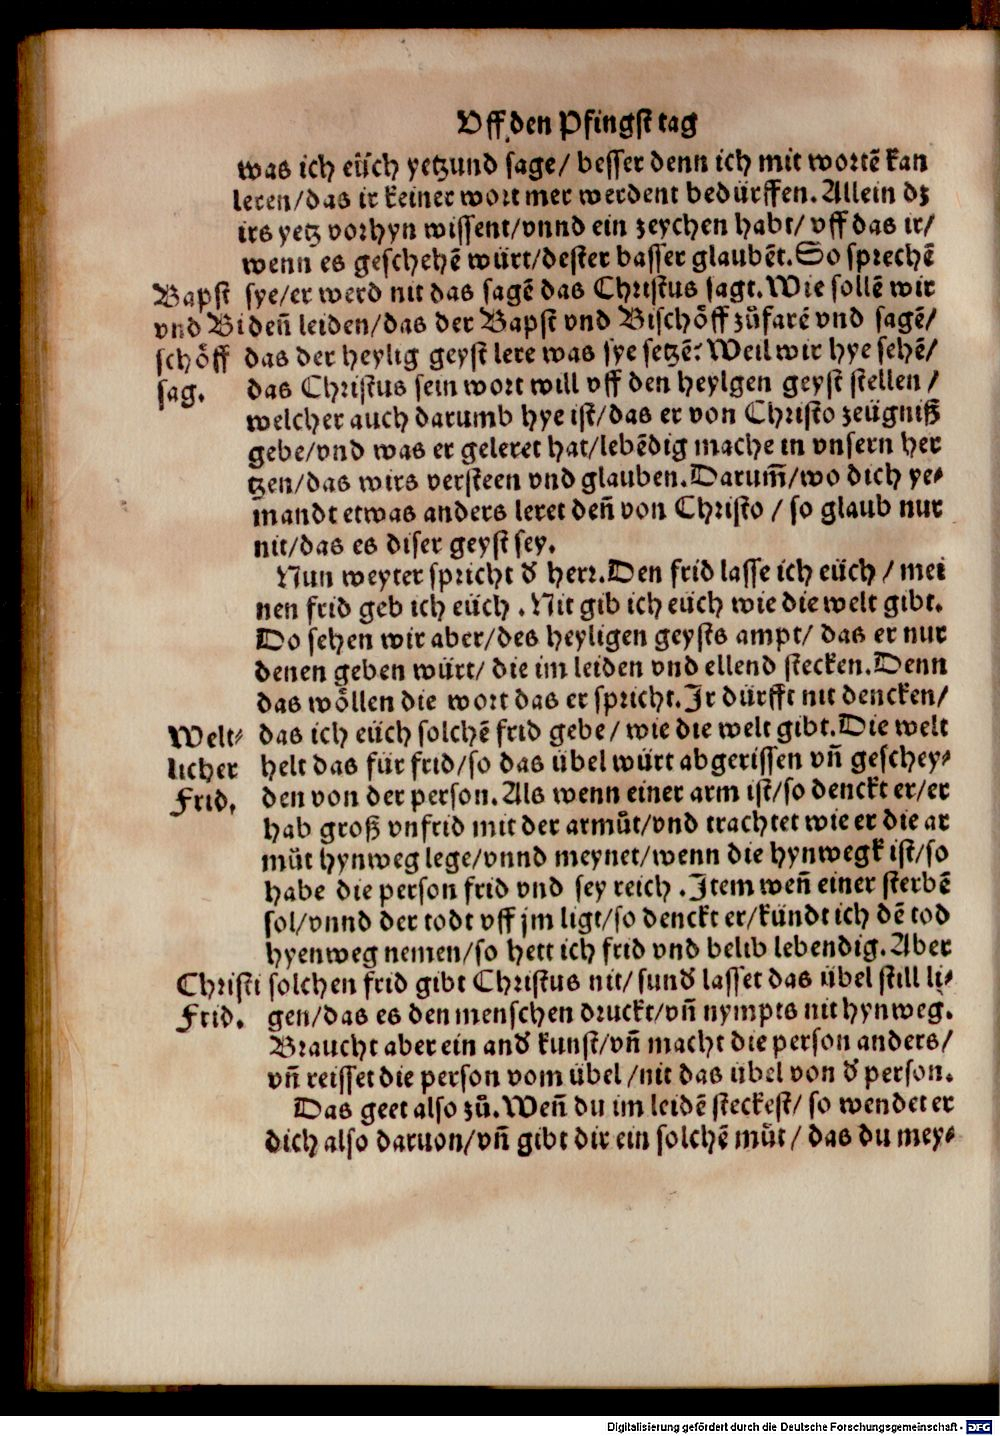 Uff den Pfingst tag
was ich eüch yetzund sage/ besser denn ich mit wortē kan
leren/das ir keiner wort mer werdent bedürffen. Allein dz
irs yetz vorhyn wissent/vnnd ein zeychen habt/ vff das ir/
wenn es geschehē würt/dester basser glaubēt. So sprechē
Bapst sye/er werd nit das sagē das Christus sagt. Wie sollē wir
vnd Bi deñ leiden/das der Bapst vnd Bischoͤff zuͦfarē vnd sagē/
schoͤff das der heylig geyst lere was sye setzē? Weil wir hye sehē/
sag. das Christus sein wort will vff den heylgen geyst stellen /
welcher auch darumb hye ist/das er von Christo zeügniß
gebe/vnd was er geleret hat/lebēdig mache in vnsern her
tzen/das wirs versteen vnd glauben. Darum̄/wo dich ye⸗
mandt etwas anders leret deñ von Christo / so glaub nur
nit/das es diser geyst sey.
Nun weyter spricht d̓ herr. Den frid lasse ich eüch / mei
nen frid geb ich eüch . Nit gib ich eüch wie die welt gibt.
Do sehen wir aber/des heyligen geysts ampt/ das er nur
denen geben würt/ die im leiden vnd ellend stecken. Denn
das woͤllen die wort das er spricht. Ir dürfft nit dencken/
Welt⸗ das ich eüch solchē frid gebe/ wie die welt gibt. Die welt
licher helt das für frid/so das übel würt abgerissen vñ geschey⸗
Frid. den von der person. Als wenn einer arm ist/so denckt er/er
hab groß vnfrid mit der armuͦt/vnd trachtet wie er die ar
muͦt hynweg lege/vnnd meynet/wenn die hynwegk ist/so
habe die person frid vnd sey reich . Item weñ einer sterbē
sol/vnnd der todt vff jm ligt/so denckt er/kündt ich dē tod
hyenweg nemen/so hett ich frid vnd belib lebendig. Aber
Christi solchen frid gibt Christus nit/ sund̓ lasset das übel still li⸗
Frid. gen/das es den menschen druckt/vñ nympts nit hynweg.
Braucht aber ein and̓ kunst/vñ macht die person anders/
vñ reisset die person vom übel /nit das übel von d̓ person.
Das geet also zuͦ. Weñ du im leidē steckest/ so wendet er
dich also daruon/vñ gibt dir ein solchē muͦt / das du mey⸗
Digitalisierung gefördert durch die Deutsche Forschungsgemeinschaft - DFG